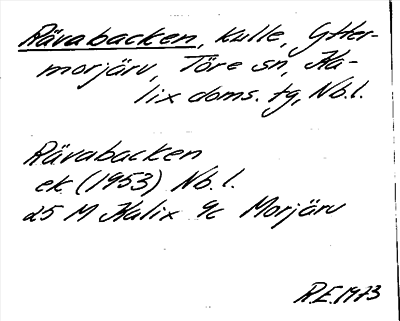 Rävabacken, kulle, Ytter-
morjärv, Töre sn, Ka-
lix doms. tg, Nb.l.
Rävabacken
ek. (1953) Nb. l.
25 M Kalix 9c Morjärv
R.E. 1973